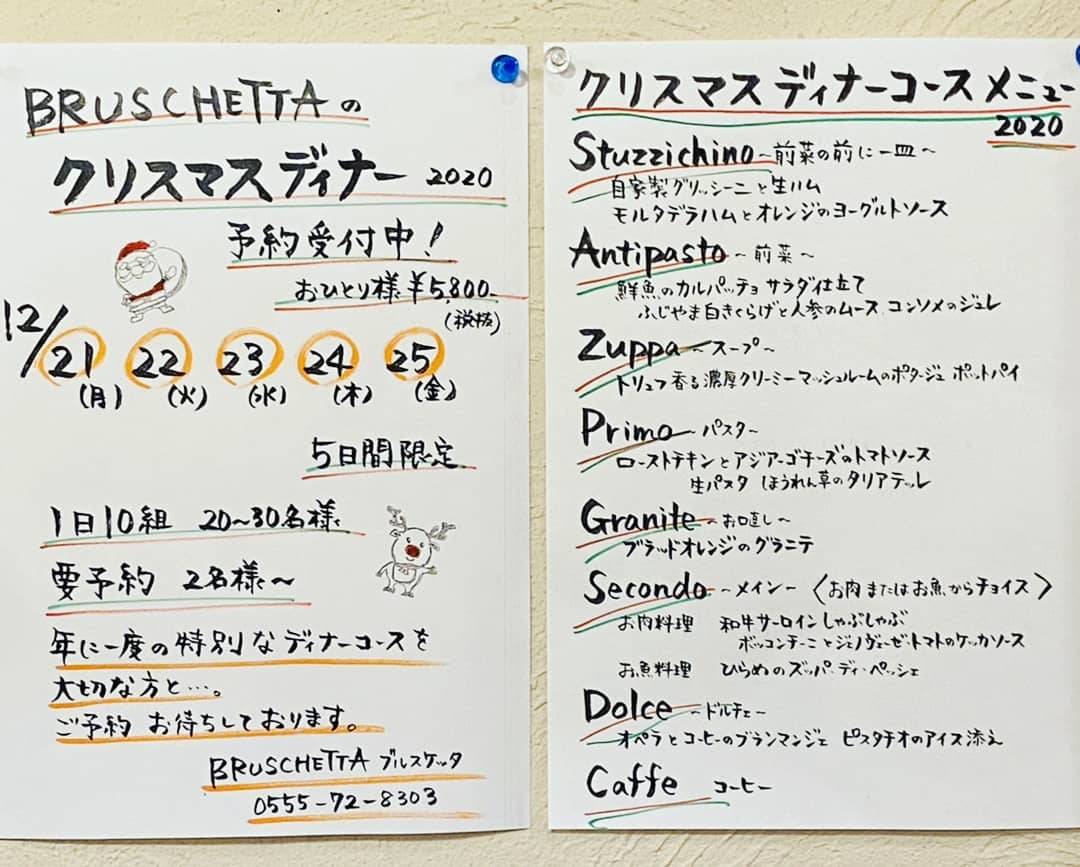 BRUSCHETTAの
クリスマスディナー 2020
予約受付中！
おひとり様 ¥5,800-
(税抜)
12/21 22 23 24 25
(月) (火) (水) (木) (金)
5日間限定
1日10組 20〜30名様
要予約 2名様〜
年に一度の特別なディナーコースを
大切な方と…。
ご予約 お待ちしております。
BRUSCHETTA ブルスケッタ
0555-72-8303
クリスマスディナーコースメニュー
2020
Stuzzichino 〜前菜の前に一皿〜
自家製グリッシーニと生ハム
モルタデラハムとオレンジのヨーグルトソース
Antipasto 〜前菜〜
鮮魚のカルパッチョ サラダ仕立て
ふじやま白きくらげと人参のムース コンソメのジュレ
Zuppa 〜スープ〜
トリュフ香る濃厚クリーミーマッシュルームのポタージュ ポットパイ
Primo 〜パスタ〜
ローストチキンとアジアーゴチーズのトマトソース
生パスタ ほうれん草のタリアテッレ
Granite 〜お口直し〜
ブラッドオレンジのグラニテ
Secondo 〜メイン〜 〈お肉またはお魚からチョイス〉
お肉料理 和牛サーロインしゃぶしゃぶ
ボッコンチーニとジェノヴェーゼ・トマトのケッカソース
お魚料理 ひらめのズッパ・ディ・ペッシェ
Dolce 〜ドルチェ〜
オペラとコーヒーのブランマンジェ ピスタチオのアイス添え
Caffe コーヒー